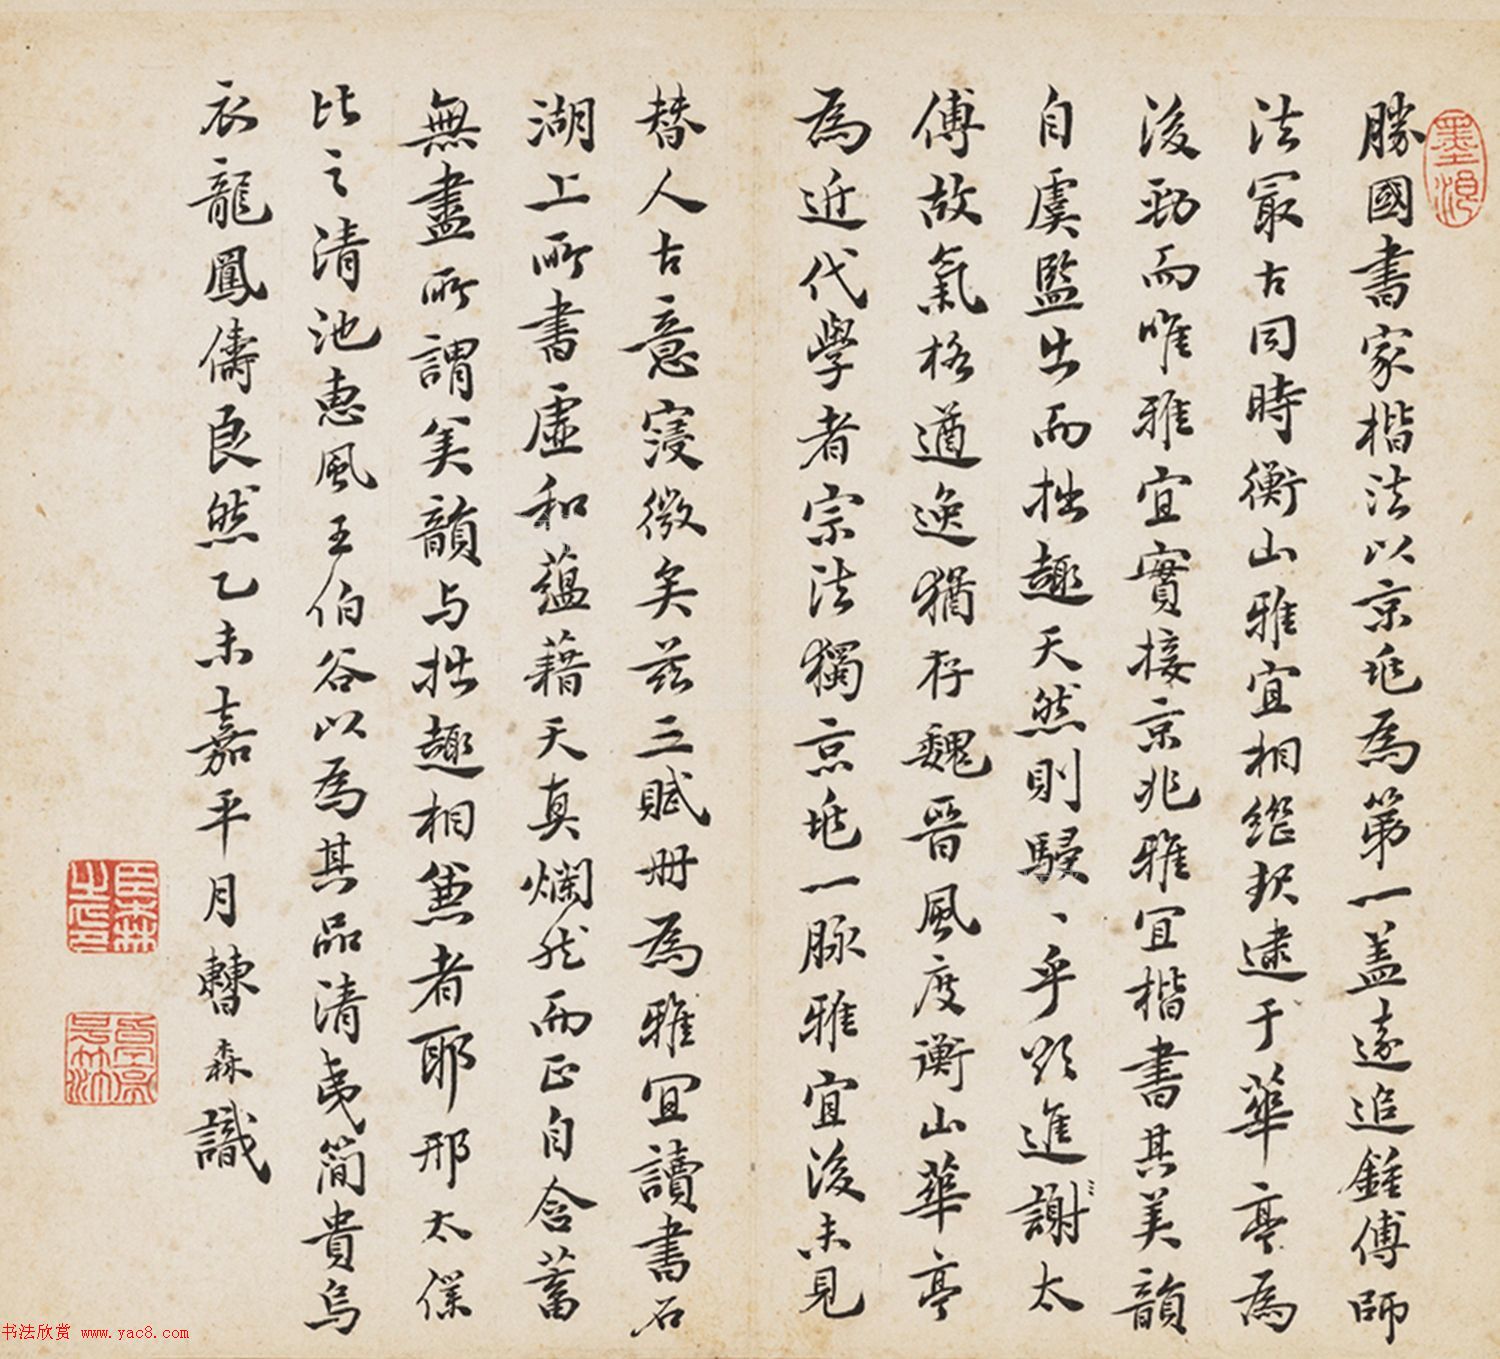 勝國書家楷法以京兆為第一蓋遠追鍾傅師
法最古同時衡山雅宜相繼現逮于華亭為
後勁而唯雅宜實接京兆雅宜楷書其美韻
自虞監出而拙趣天然則駸〻乎欲進謝太
傅故氣格遒逸猶存魏晉風度衡山華亭
為近代學者宗法獨京兆一脉雅宜後未見
替人古意寖微矣茲三賦冊為雅宜讀書石
湖上所書虛和蘊藉天真爛然而正自含蓄
無盡所謂美韻与拙趣相兼者耶邢太僕
比之清池惠風王伯谷以為其品清夷簡貴烏
衣龍鳳儔良然乙未嘉平月曹森識
书法欣赏 www.yac8.com